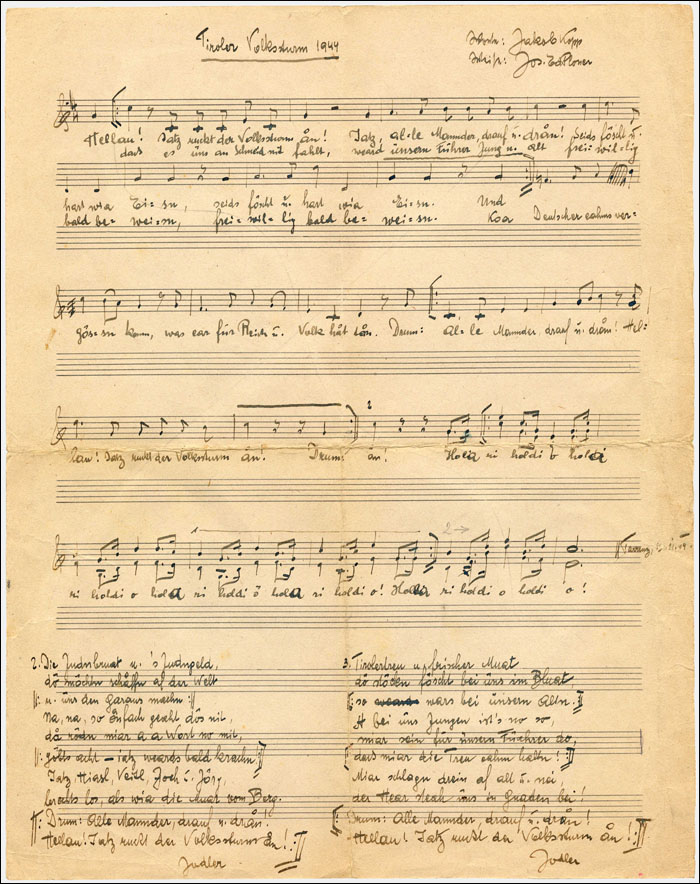 Tiroler Volkssturm 1944
Worte: Jakob Kopp
Weise: Jos. Ed. Ploner
Hellau! Jatz ruckt der Volkssturm ån! Jatz, al=le Mannder, drauf u. drån! Seids föscht u.
dass es uns an Schneid nit fahlt, weard ünsern Führer Jung u. alt frei=wil=lig
hart wia Ei=sn, seids föscht u. hart wia Ei=sn. Und
bald be=weisn, frei=wil=lig bald be=weisn. Koa Deutscher eahms ver=
göss=sn kann, was ear für Reich u. Volk håt tån. Drum: al=le Mannder, drauf u. drån! Hel=
lau! Jatz ruckt der Volkssturm ån! Drum: ån! Holla ri holdi o holla
2
2→
ri holdi o holla ri holdi o holla ri holdi o! Holla ri holdi o holdi o!
2. Die Judnbruat u. 's Judngeld,
dö möchtn schåffn af der Welt
u. üns den Garaus machn
Na, na, so önfach geaht dös nit,
då rödn miar a a Wort no mit,
göbts acht – jatz weards bald krachn
Jatz Hiasl, Veitl, Joch u. Jörg,
brechts los, als wia die Muar vom Berg.
Drum: Alle Mannder, drauf u. drån!
Hellau! Jatz ruckt der Volkssturm ån!
Jodler
3. Tirolertreu u. frischer Muat
dö stöckn föscht bei üns im Bluat,
so wars bei ünsern Altn.
A bei üns Jungen ist's no so,
miar sein für ünsern Füehrer do,
dass miar die Treu eahm haltn!
Miar schlagn drein af all u. noi,
der Hear steah üns in Gnaden bei!
Drum: Alle Mannder, drauf u. drån!
Hellau! Jatz ruckt der Volkssturm ån!
Jodler